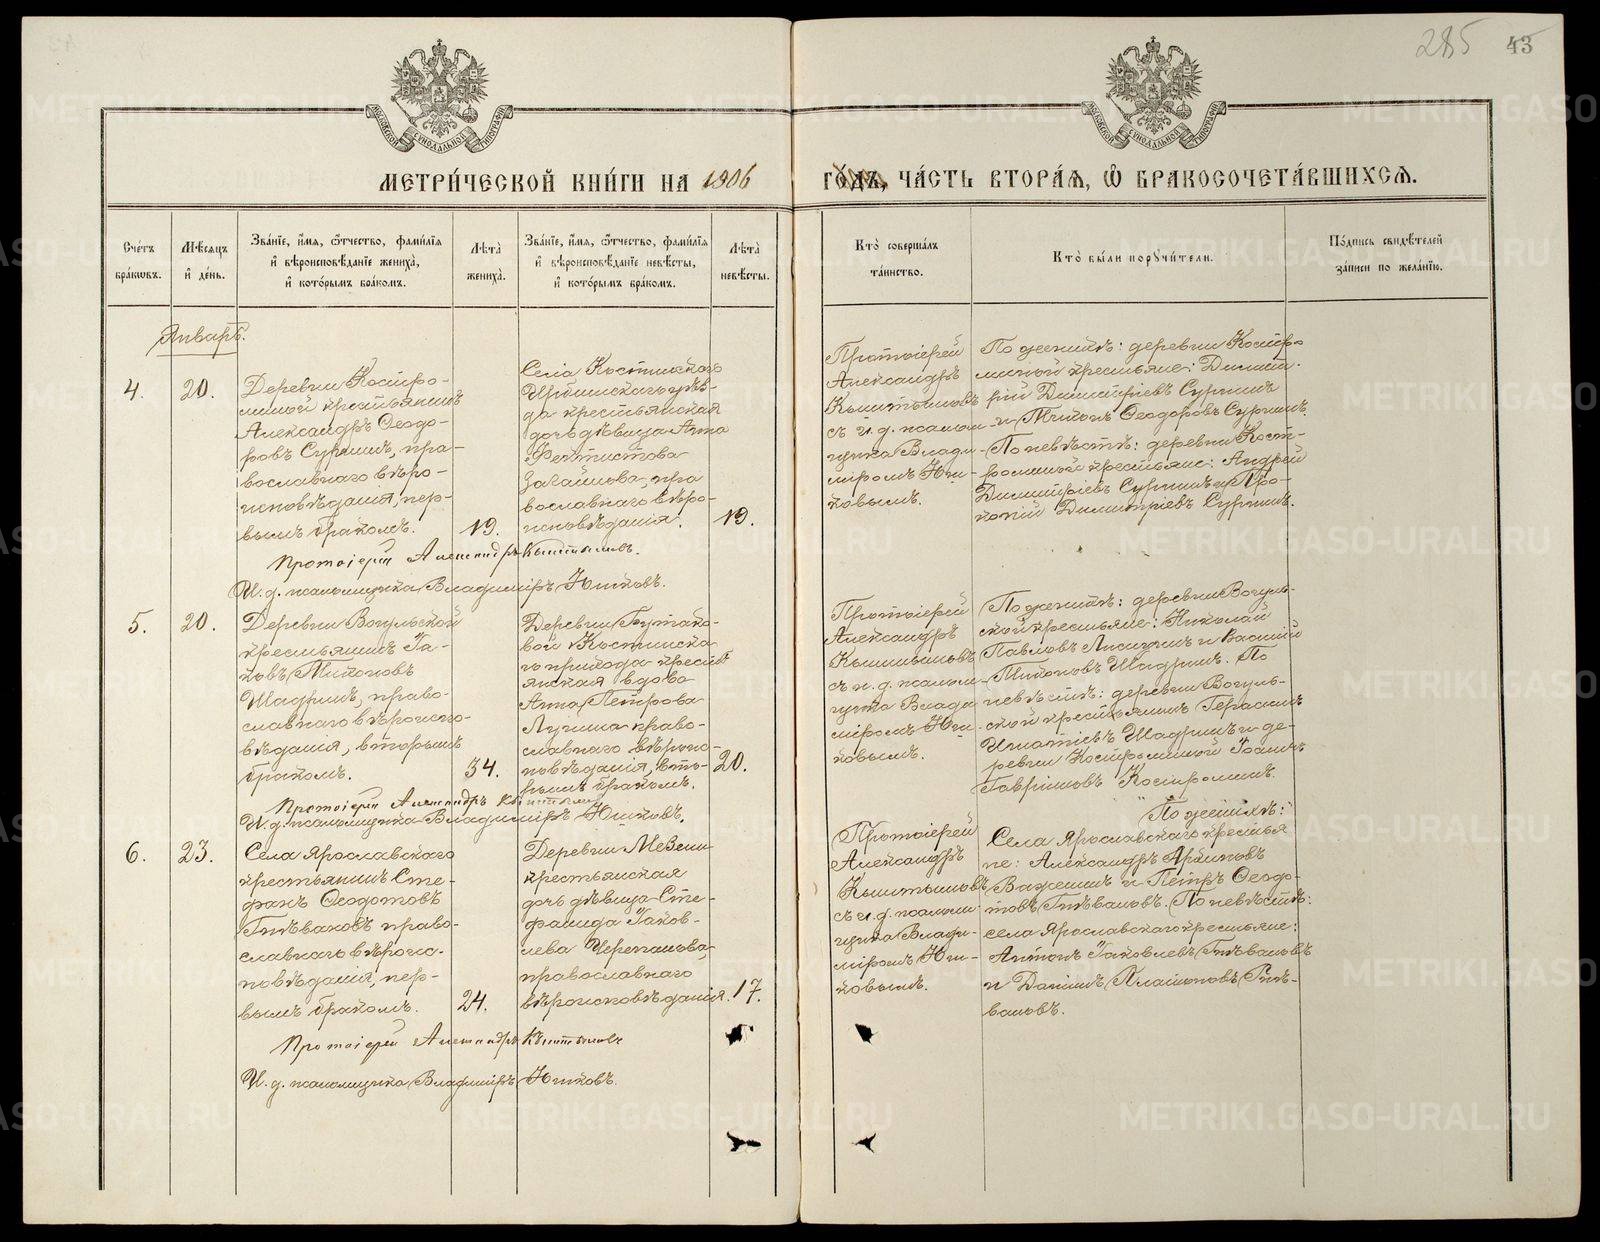 285 43
МЕТРИ́ЧЕСКОЙ КНИ́ГИ НА 1906 ГО́ДЪ, ЧА́СТЬ ВТОРА́Я, Ѽ БРАКОСОЧЕТА́ВШИХСѦ.
Сче́тъ
бра́кωвъ.
Мѣ́сяцъ
и҆ де́нь.
Зва́нїе, и҆́мя, ѻ҆́тчество, фами́лїя
и҆ вѣроисповѣ́данїе жениха̀,
и҆ кото́рымъ бра́комъ.
Лѣ́та
жениха̀.
Зва́нїе, и҆́мя, ѻ҆́тчество, фами́лїя
и҆ вѣроисповѣ́данїе невѣ́сты,
и҆ кото́рымъ бра́комъ.
Лѣта̀
невѣ́сты.
Кто̀ соверша́лъ
та́инство.
Кто̀ бы́ли пору́чи́тели.
По́дпись свидѣ́телей
за́писи по жела́нїю.
Январь.
4.
20.
Деревни Костро-
миной крестьянинъ
Александръ Ѳеодо-
ровъ Сурнинъ, пра-
вославнаго вѣро-
исповѣданія, пер-
вымъ бракомъ.
19.
Села Костинскаго
Ирбитскаго уѣз-
да крестьянская
дочь дѣвица Анна
Фектистова
Загайнова, пра
вославнаго вѣро-
исповѣданія.
19.
Протоіерей
Александръ
Кыштымовъ
съ и. д. псалом-
щика Влади-
міромъ Юш-
ковымъ.
По женихѣ: деревни Костро-
миной крестьяне: Димит-
рій Димитріевъ Сурнинъ
и Тихонъ Ѳеодоровъ Сурнинъ.
По невѣстѣ: деревни Кост-
роминой крестьяне: Андрей
Димитріевъ Сурнинъ и Про-
копій Димитріевъ Сурнинъ.
Протоіерей Александръ Кыштымовъ.
И. д. псаломщика Владиміръ Юшковъ.
5.
20.
Деревни Вогульской
крестьянинъ Іа-
ковъ Тихоновъ
Шадринъ, право-
славнаго вѣроиспо-
вѣданія, вторымъ
бракомъ.
34.
Деревни Бутако-
вой Костинска-
го прихода кресть
янская вдова
Анна Петрова
Лучина право-
славнаго вѣроис-
повѣданія, вто-
рымъ бракомъ.
20.
Протоіерей
Александръ
Кыштымовъ
съ и. д. псалом-
щика Влади
міромъ Юш-
ковымъ.
По женихѣ: деревни Вогуль-
ской крестьяне: Николай
Павловъ Лисицинъ и Василій
Тихоновъ Шадринъ. По
невѣстѣ: деревни Вогуль-
ской крестьянинъ Герасимъ
Игнатіевъ Шадринъ и де-
ревни Костроминой Іоаннъ
Гавріиловъ Костроминъ.
Протоіерей Александръ Кыштымовъ
И. д. псаломщика Владиміръ Юшковъ.
6.
23.
Села Ярославскаго
крестьянинъ Сте-
фанъ Ѳеодотовъ
Гнѣвановъ право-
славнаго вѣроис-
повѣданія, пер-
вымъ бракомъ.
24.
Деревни Мезени
крестьянская
дочь дѣвица Сте-
фанида Іаков-
лева Черепанова,
православнаго
вѣроисповѣданія.
17.
Протоіерей
Александръ
Кыштымовъ
съ и. д. псалом-
щика Влади-
міромъ Юш-
ковымъ.
По женихѣ:
Села Ярославскаго крестья
не: Александръ Архиповъ
Важенинъ и Петръ Ѳеодо-
товъ Гнѣвановъ. По невѣстѣ:
села Ярославскаго крестьяне:
Антонъ Іаковлевъ Гнѣвановъ
и Даніилъ Платоновъ Гнѣ-
вановъ.
Протоіерей Александръ Кыштымовъ
И. д. псаломщика Владиміръ Юшковъ.